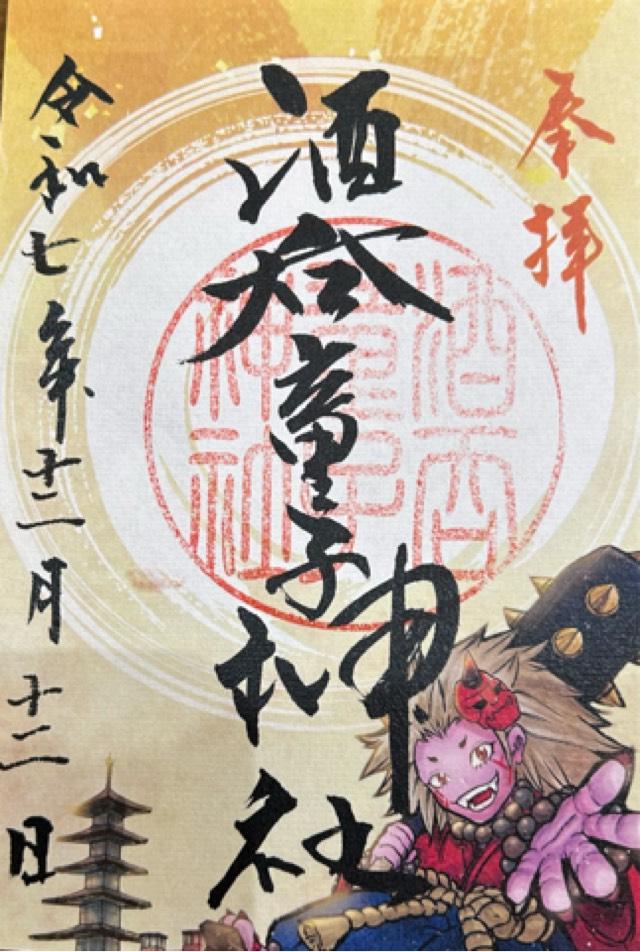 奉拝
酒呑童子神社
酒呑
童子
神社
令和七年十二月十二日